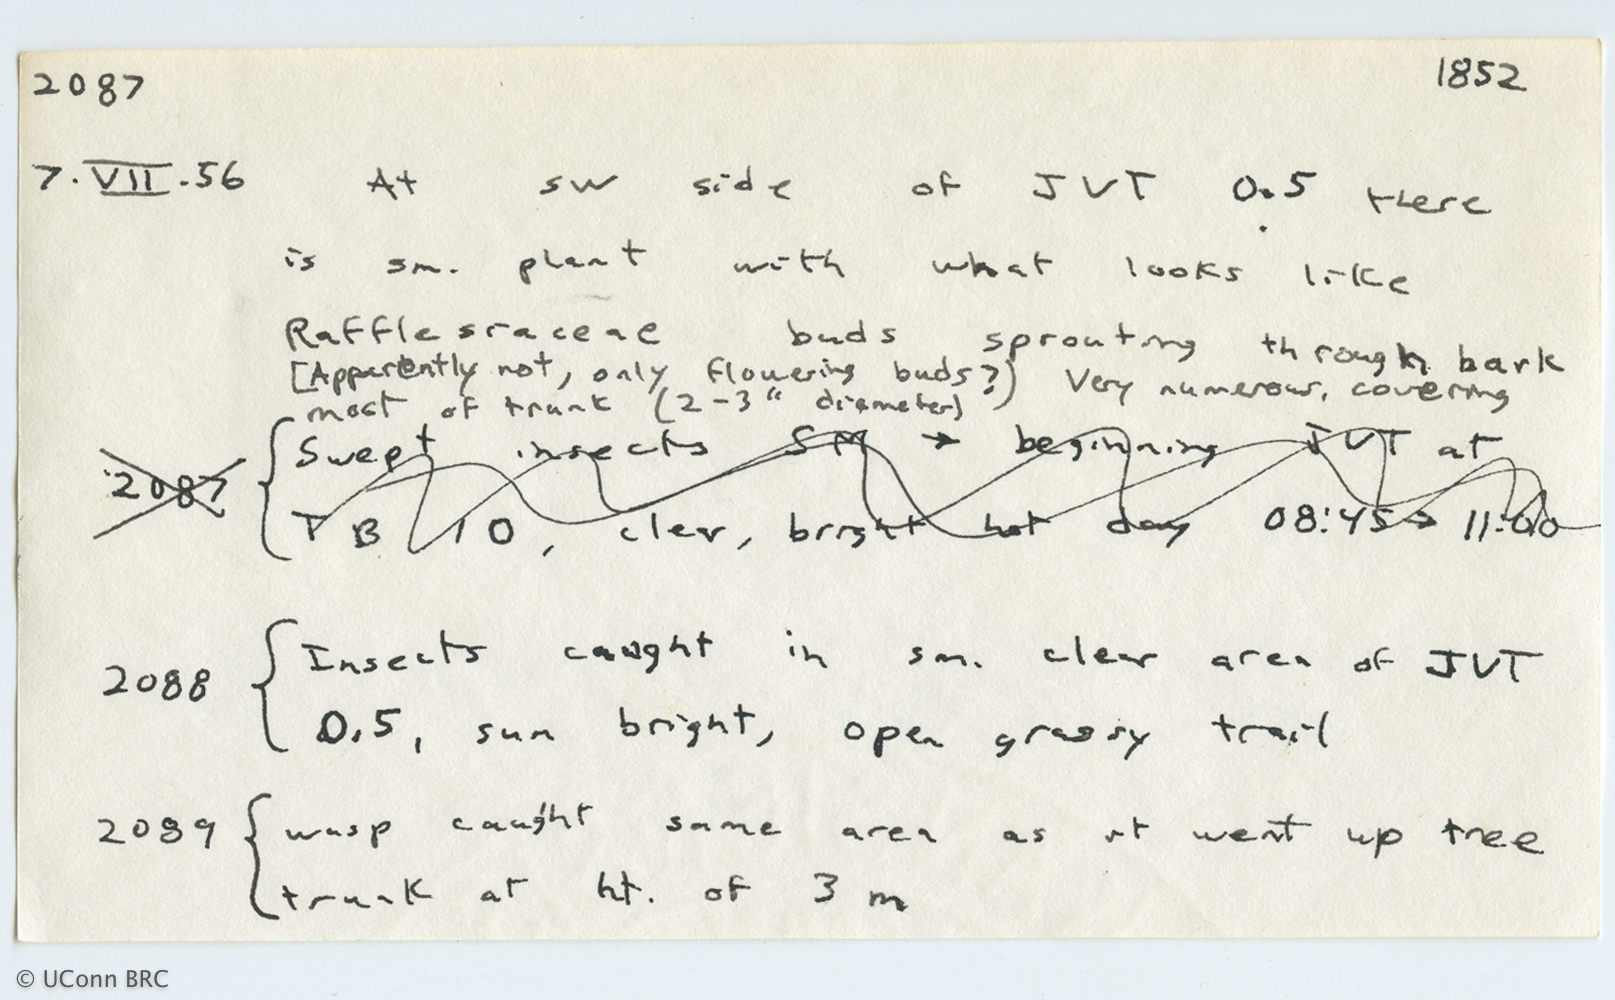 2087 1852
7.VII.56 At SW side of JVT 0.5 there
is sm. plant with what looks like
Rafflesiaceae buds sprouting through bark
[Apparently not, only flowering buds?] Very numerous, covering
most of trunk (2-3" diameter)
2087 { Swept insects SM → beginning JVT at
TB 10, clear, bright hot day 08:45 → 11:00
2088 { Insects caught in sm. clear area of JVT
0.5, sun bright, open grassy trail
2089 { wasp caught same area as it went up tree
trunk at ht. of 3 m
© UConn BRC